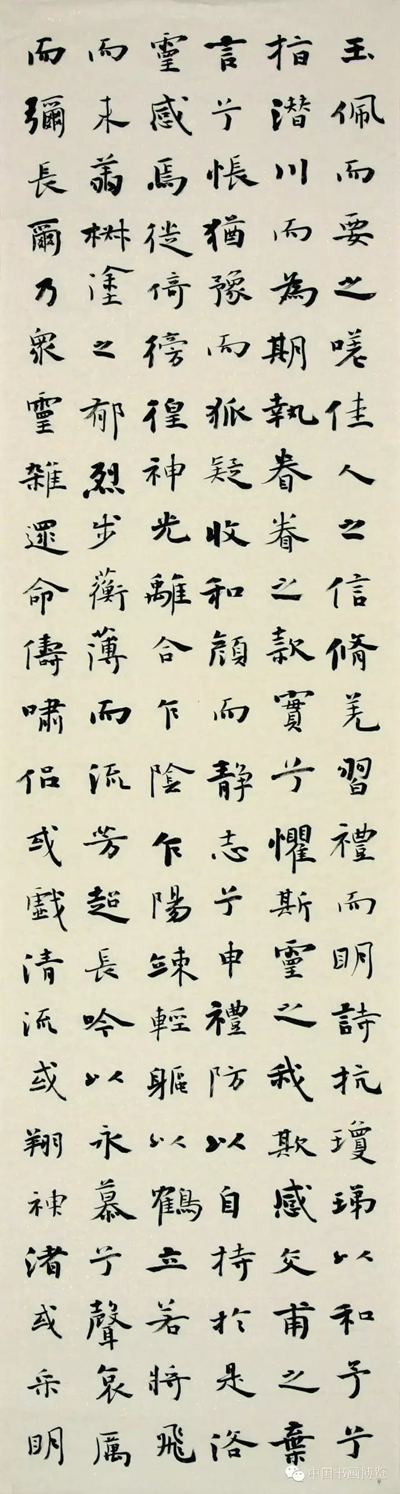 玉佩而要之嗟佳人之信脩羌習禮而明詩抗瓊珶以和予兮
指潜川而為期執眷眷之款實兮懼斯靈之我欺感交甫之棄
言兮悵猶豫而狐疑收和顔而静志兮申禮防以自持於是洛
靈感焉徙倚徬徨神光離合乍陰乍陽竦輕軀以鶴立若將飛
而未翥椒塗之郁烈步蘅薄而流芳超長吟以永慕兮聲哀厲
而彌長爾乃衆靈雜遝命儔嘯侣或戲清流或翔神渚或采明
中国书画博览